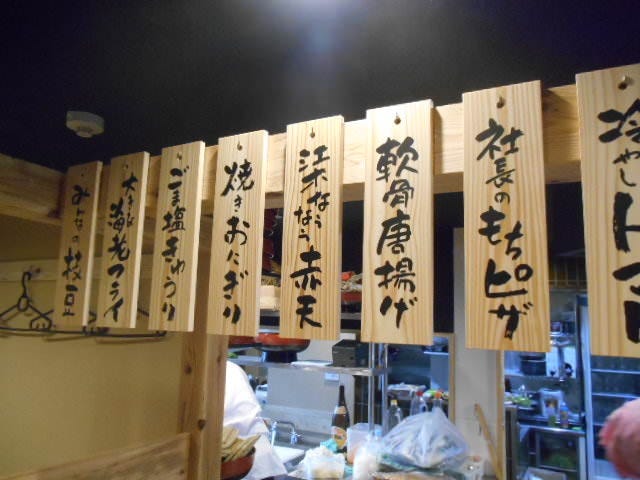 みんなの枝豆
大きな海老フライ
ごま塩きゅうり
焼きおにぎり
江木なうなう赤天
軟骨唐揚げ
社長のもちピザ
冷やしトマ